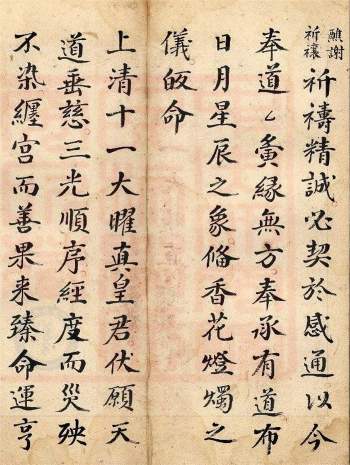 醮謝
祈禳
祈禱精誠必契於感通以今
奉道厶夤緣無方奉承有道布
日月星辰之象俻香花燈燭之
儀皈命
上清十一大曜真皇君伏願天
道垂慈三光順序經度而災殃
不染纏宮而善果来臻命運亨